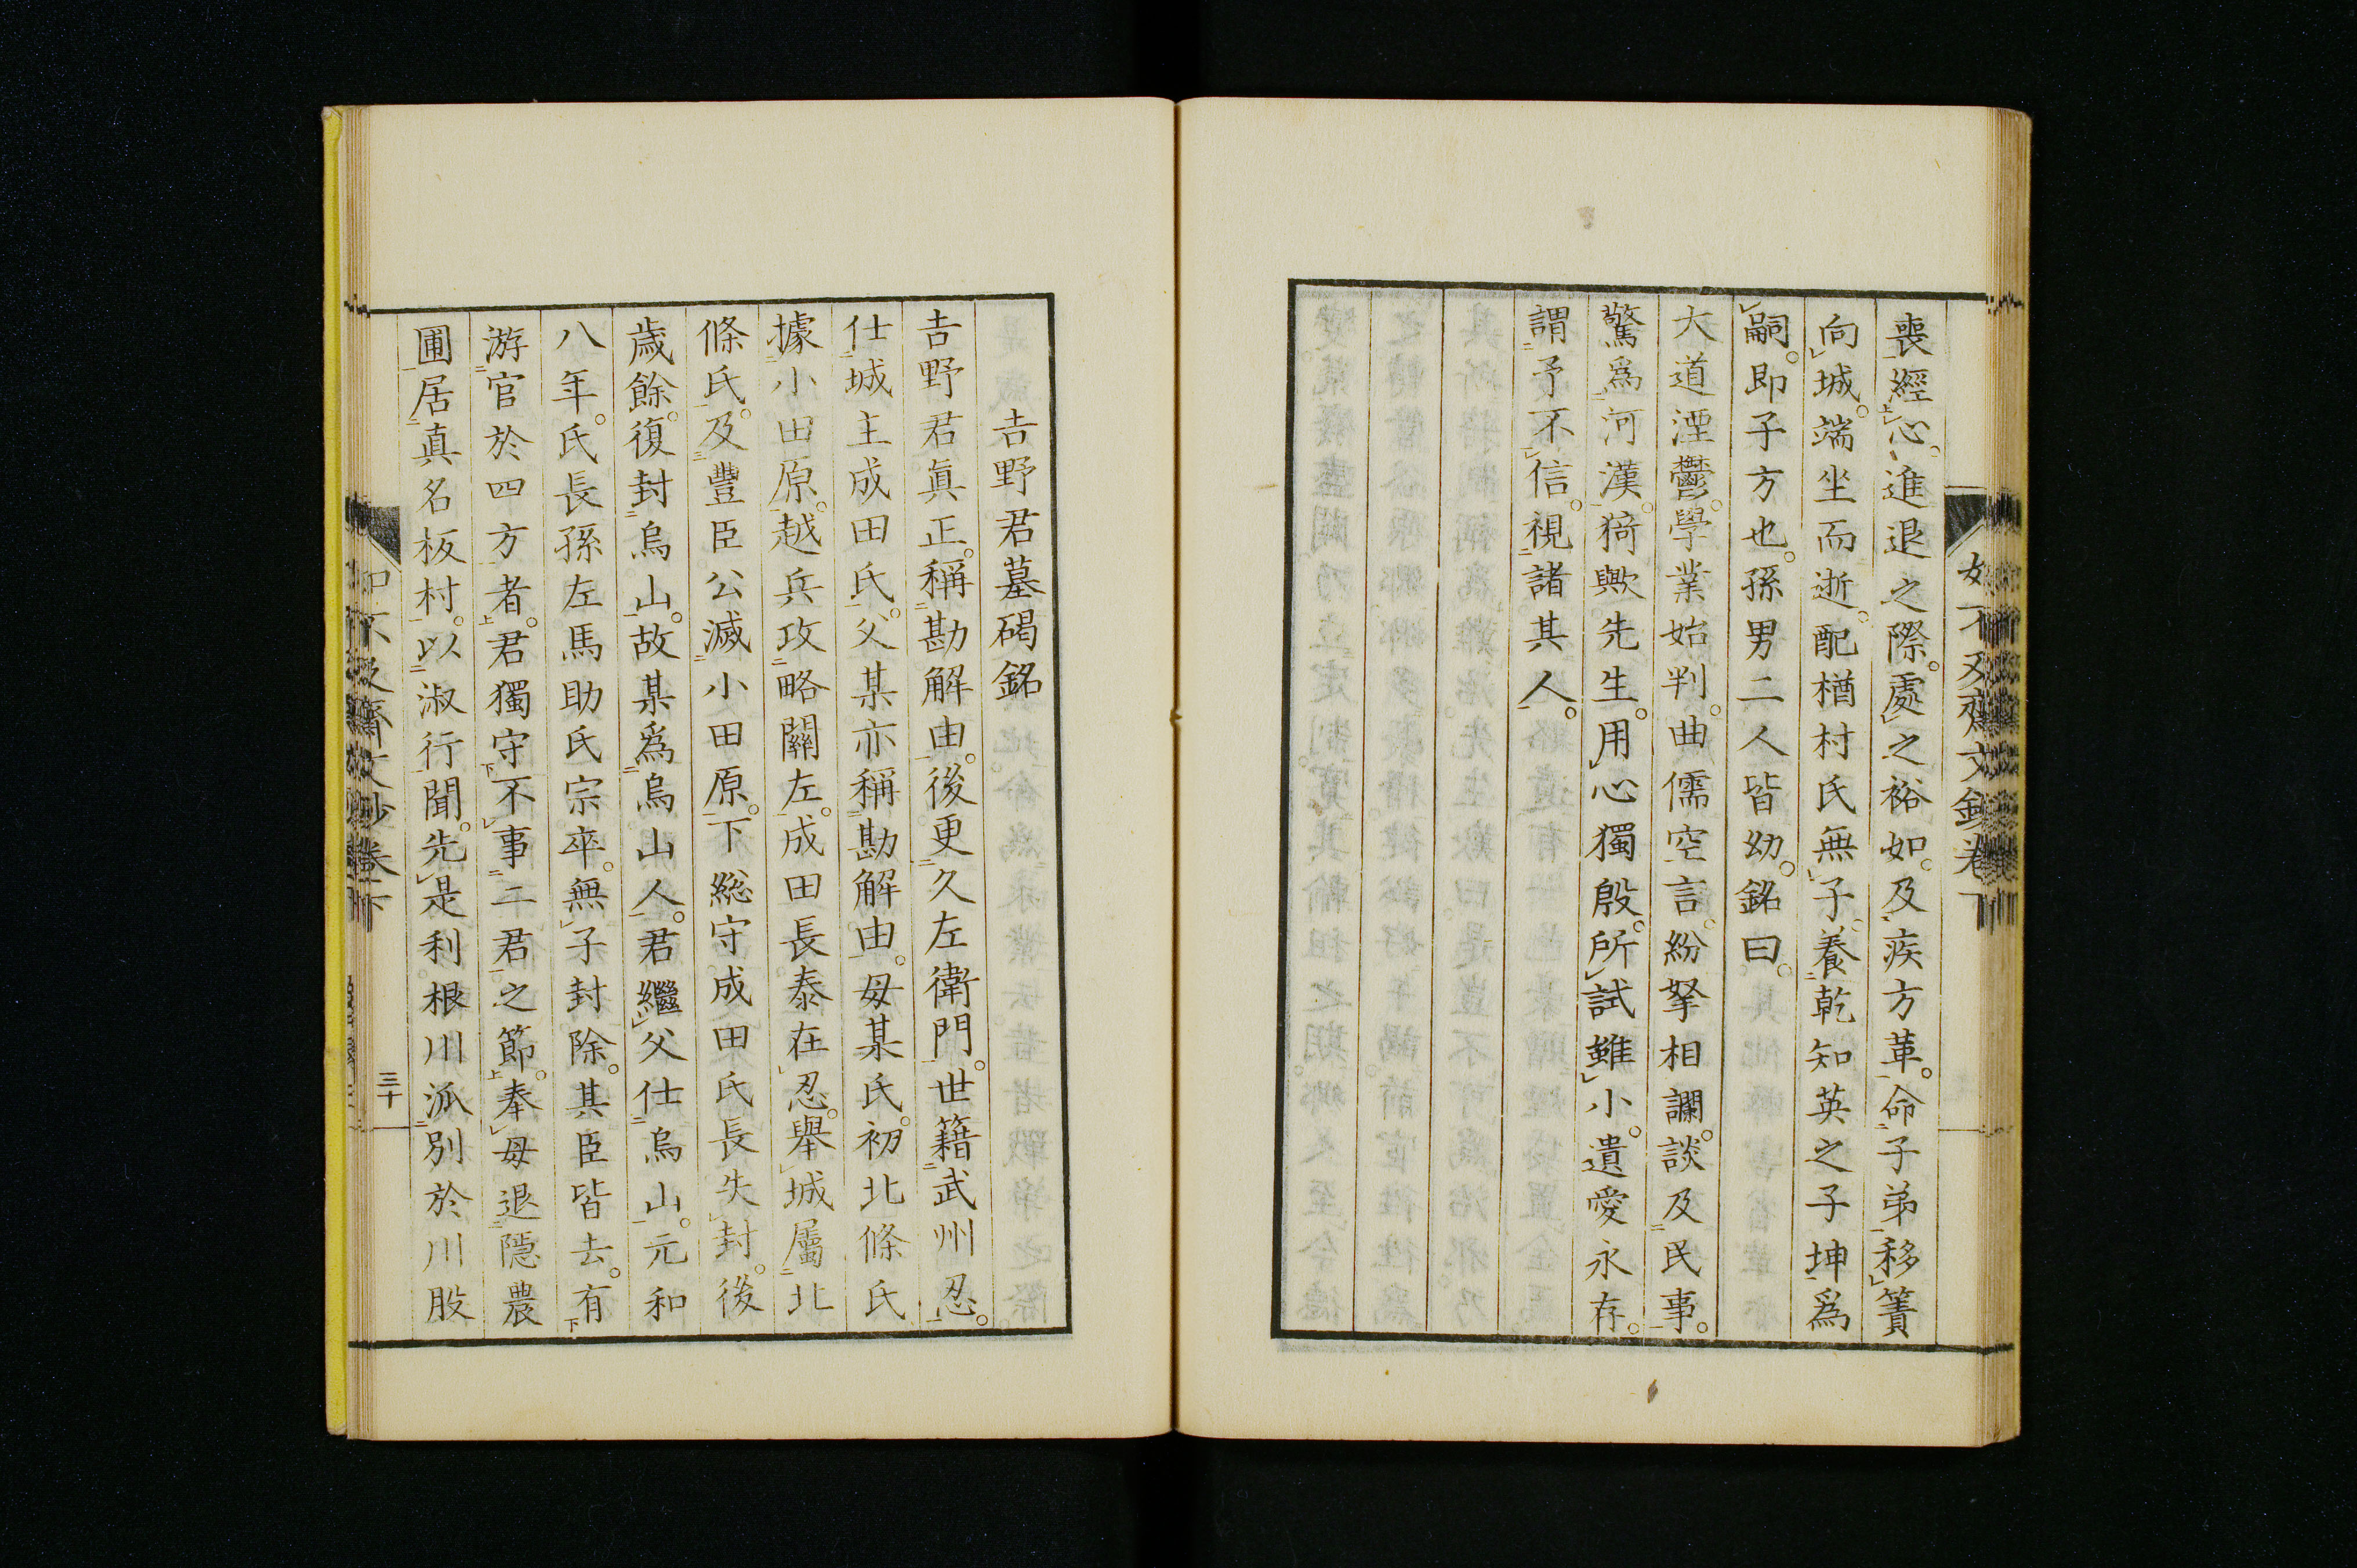 喪經心。進退之際。處之裕如。及疾方革。命子弟移簀
向城。端坐而逝。配楢村氏無子。養乾知英之子坤爲
嗣。即子方也。孫男二人皆幼。銘曰。
大道湮鬱。學業始判。曲儒空言。紛拏相讕。談及民事。
驚爲河漢。猗歟先生。用心獨殷。所試雖小。遺愛永存。
謂予不信。視諸其人。
吉野君墓碣銘
吉野君眞正。稱勘解由。後更久左衛門。世籍武州忍。
仕城主成田氏。父某亦稱勘解由。母某氏。初北條氏
據小田原。越兵攻略關左。成田長泰在忍。舉城屬北
條氏。及豐臣公滅小田原。下総守成田氏長失封。後
歲餘。復封烏山。故某爲烏山人。君繼父仕烏山。元和
八年。氏長孫左馬助氏宗卒。無子封除。其臣皆去。有
游官於四方者。君獨守不事二君之節。奉母退隱農
圃居真名板村。以淑行聞。先是利根川派別於川股
三十